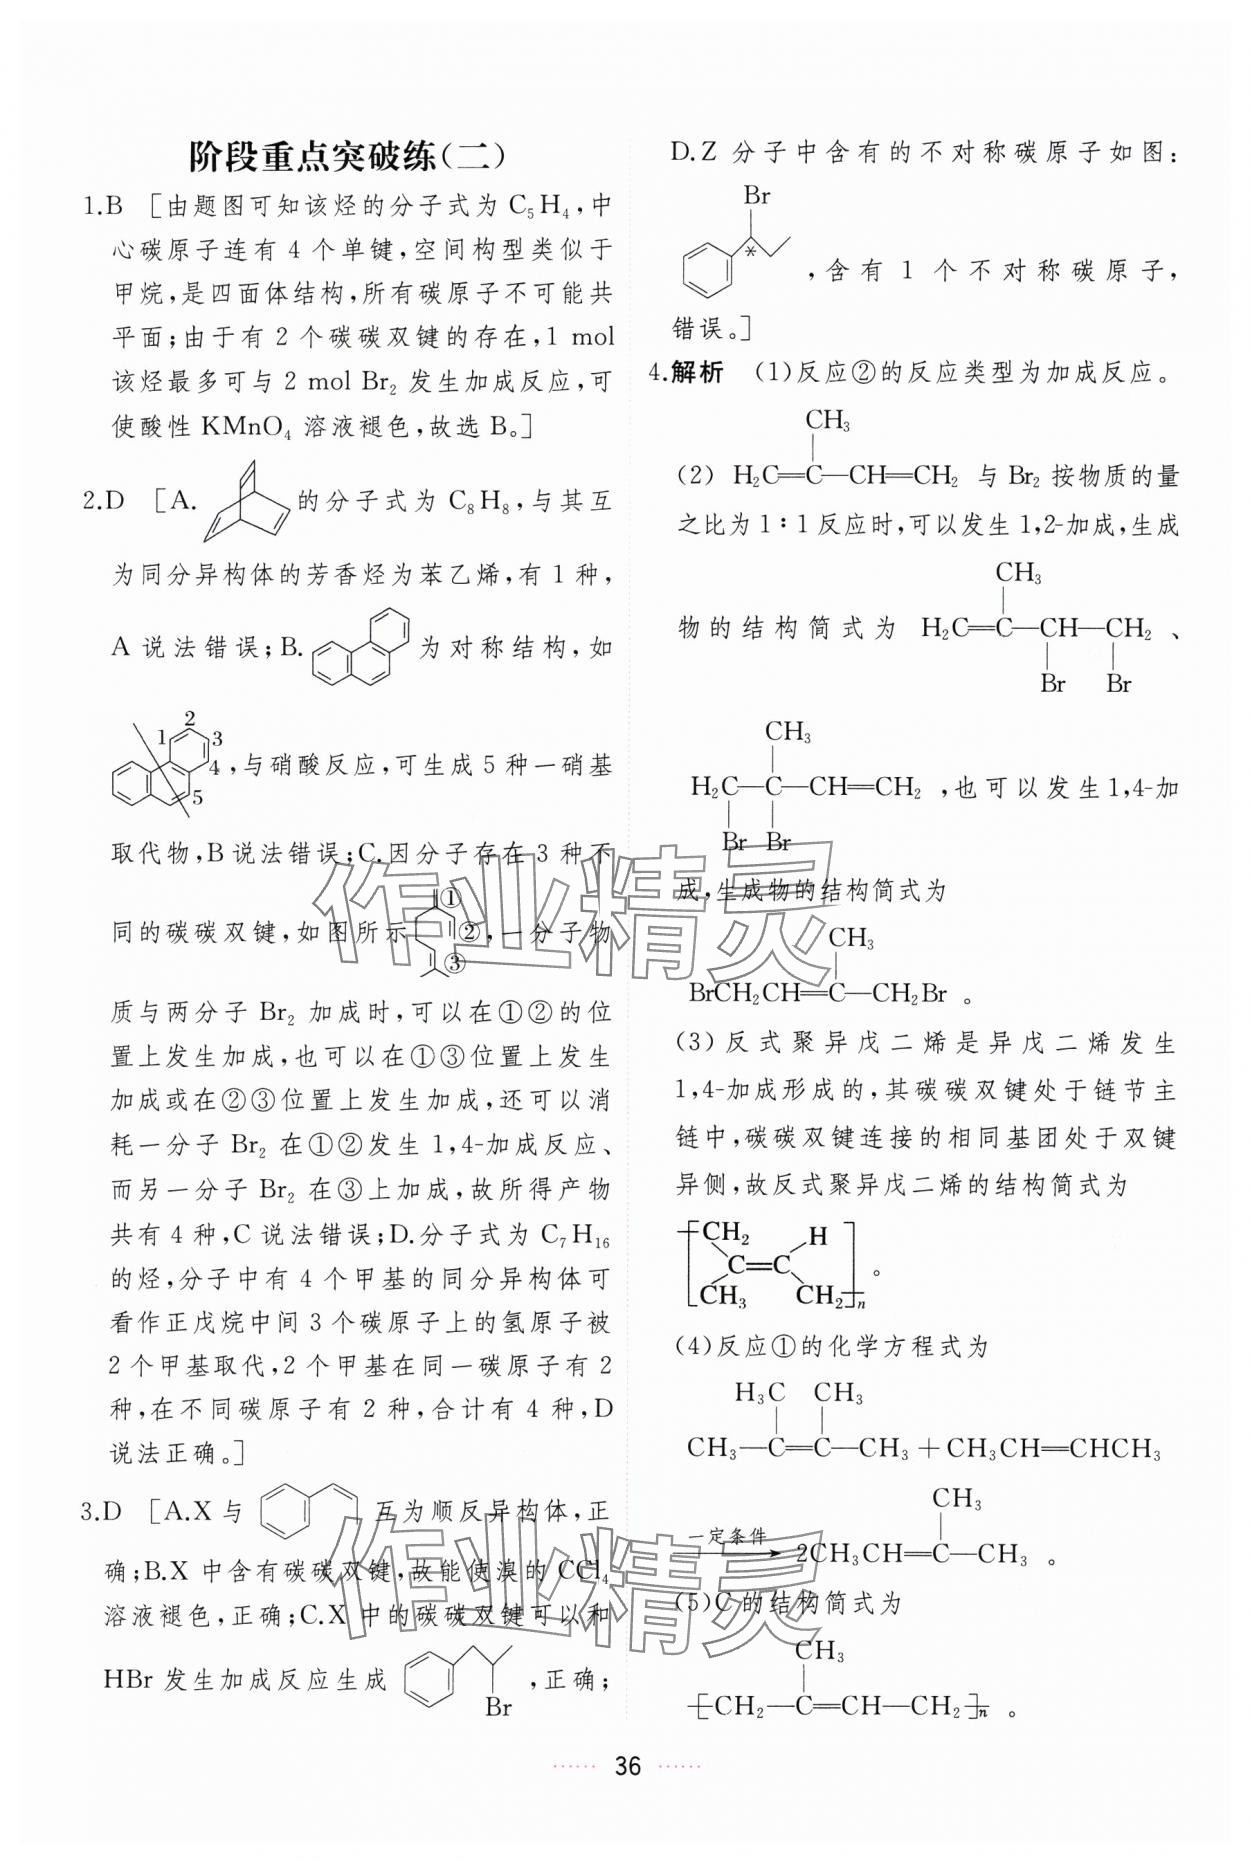 阶段重点突破练(二)
1.B [由题图可知该烃的分子式为 C₅H₄,中
心碳原子连有 4 个单键,空间构型类似于
甲烷,是四面体结构,所有碳原子不可能共
平面;由于有 2 个碳碳双键的存在,1 mol
该烃最多可与 2 mol Br₂ 发生加成反应,可
使酸性 KMnO₄ 溶液褪色,故选 B。]
2.D [A. 的分子式为 C₈H₈,与其互
为同分异构体的芳香烃为苯乙烯,有 1 种,
A 说法错误;B. 为对称结构,如
1 2 3 4 5 ,与硝酸反应,可生成 5 种一硝基
取代物,B 说法错误;C.因分子存在 3 种不
同的碳碳双键,如图所示 ① ② ③ ,一分子物
质与两分子 Br₂ 加成时,可以在①②的位
置上发生加成,也可以在①③位置上发生
加成或在②③位置上发生加成,还可以消
耗一分子 Br₂ 在①②发生 1,4-加成反应、
而另一分子 Br₂ 在③上加成,故所得产物
共有 4 种,C 说法错误;D.分子式为 C₇H₁₆
的烃,分子中有 4 个甲基的同分异构体可
看作正戊烷中间 3 个碳原子上的氢原子被
2 个甲基取代,2 个甲基在同一碳原子有 2
种,在不同碳原子有 2 种,合计有 4 种,D
说法正确。]
3.D [A.X 与 互为顺反异构体,正
确;B.X 中含有碳碳双键,故能使溴的 CCl₄
溶液褪色,正确;C.X 中的碳碳双键可以和
HBr 发生加成反应生成 Br ,正确;
D.Z 分子中含有的不对称碳原子如图:
Br
* ,含有 1 个不对称碳原子,
错误。]
4.解析 (1)反应②的反应类型为加成反应。
CH₃
(2) H₂C═C—CH═CH₂ 与 Br₂ 按物质的量
之比为 1∶1 反应时,可以发生 1,2-加成,生成
CH₃
物的结构简式为 H₂C═C—CH—CH₂ 、
Br Br
CH₃
H₂C—C—CH═CH₂ ,也可以发生 1,4-加
Br Br
成,生成物的结构简式为
CH₃
BrCH₂CH═C—CH₂Br 。
(3)反式聚异戊二烯是异戊二烯发生
1,4-加成形成的,其碳碳双键处于链节主
链中,碳碳双键连接的相同基团处于双键
异侧,故反式聚异戊二烯的结构简式为
CH₂ H
C═C 。
CH₃ CH₂ n
(4)反应①的化学方程式为
H₃C CH₃
CH₃—C═C—CH₃＋CH₃CH═CHCH₃
CH₃
一定条件→ 2CH₃CH═C—CH₃ 。
(5)C 的结构简式为
CH₃
[CH₂—C═CH—CH₂]n 。
36
作业精灵
作业精灵